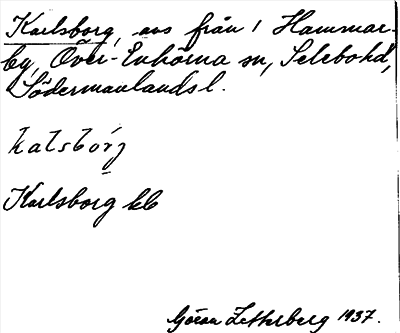 Karlsborg, avs från 1 Hammar-
by, Över-Enhörna sn, Selebo hd,
Södermanlands l.
kalsbórj
Karlsborg kb
Göran Zetterberg 1937.